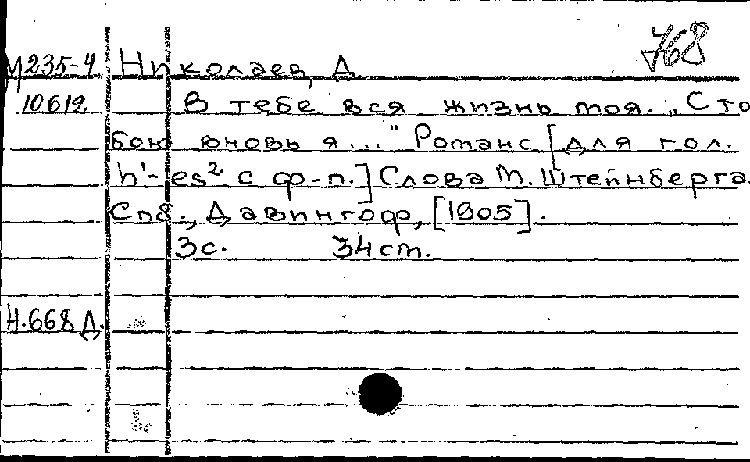 768
М235-4 Николаев, Д
10612 В тебе вся жизнь моя. „С то
бою вновь я..." Романс [для гол.
h¹-es² с ф-п.] Слова М. Штейнберга.
Спб., Давингоф, [1905].
3с. 34 cm.
Н.668 Д.